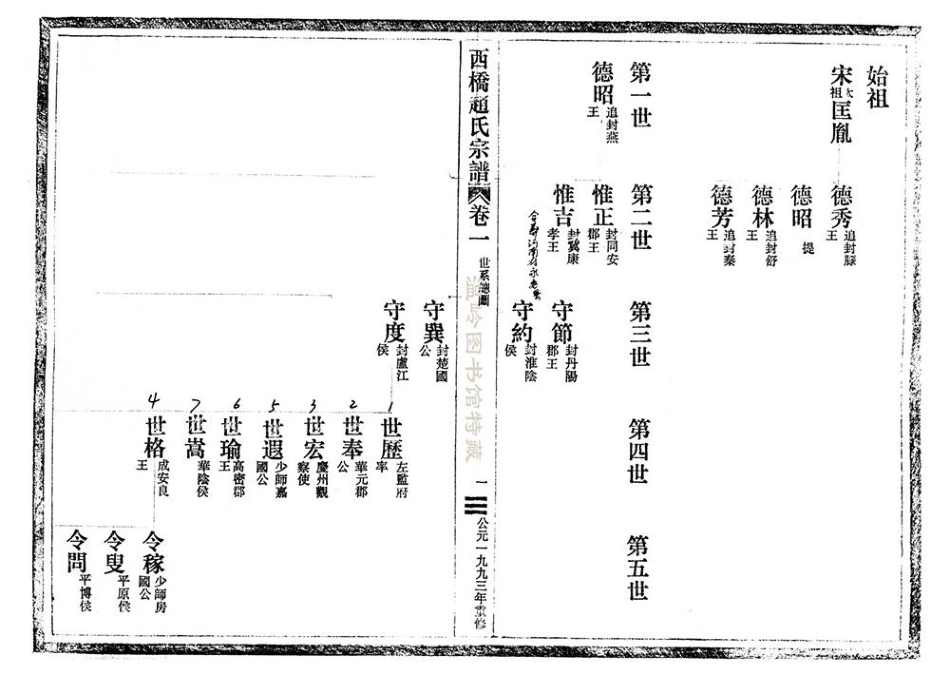 始祖
宋太祖匡胤
德秀追封滕王
德昭 提
德林追封舒王
德芳追封秦王
第一世
第二世
第三世
第四世
第五世
德昭追封燕王
惟正封同安郡王
惟吉封冀康孝王
守節封丹陽郡王
守約封淮陰侯
西橋趙氏宗譜
卷一
世系總圖
一
公元一九九三年重修
温岭图书馆特藏
守巽封楚國公
守度封盧江侯
1
世歷左監府率
2
世奉華元郡公
3
世宏慶州觀察使
5
世遐少師嘉國公
6
世瑜高密郡王
7
世嵩華陰侯
4
世格成安良王
令稼少師房國公
令叟平原侯
令問平博侯